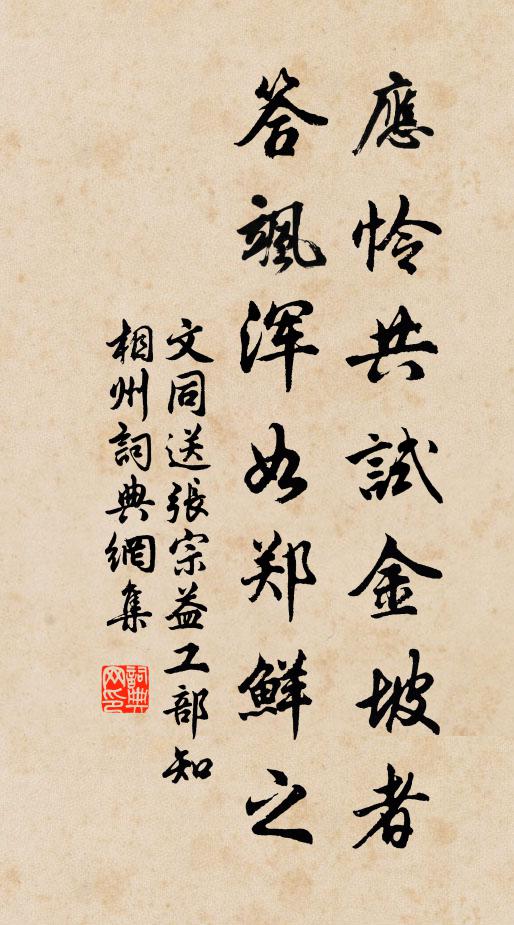 應怜共試金坡者
答颯浑如郑鮮之
文同送張宗益工部知
相州詞典網集
詞典网印